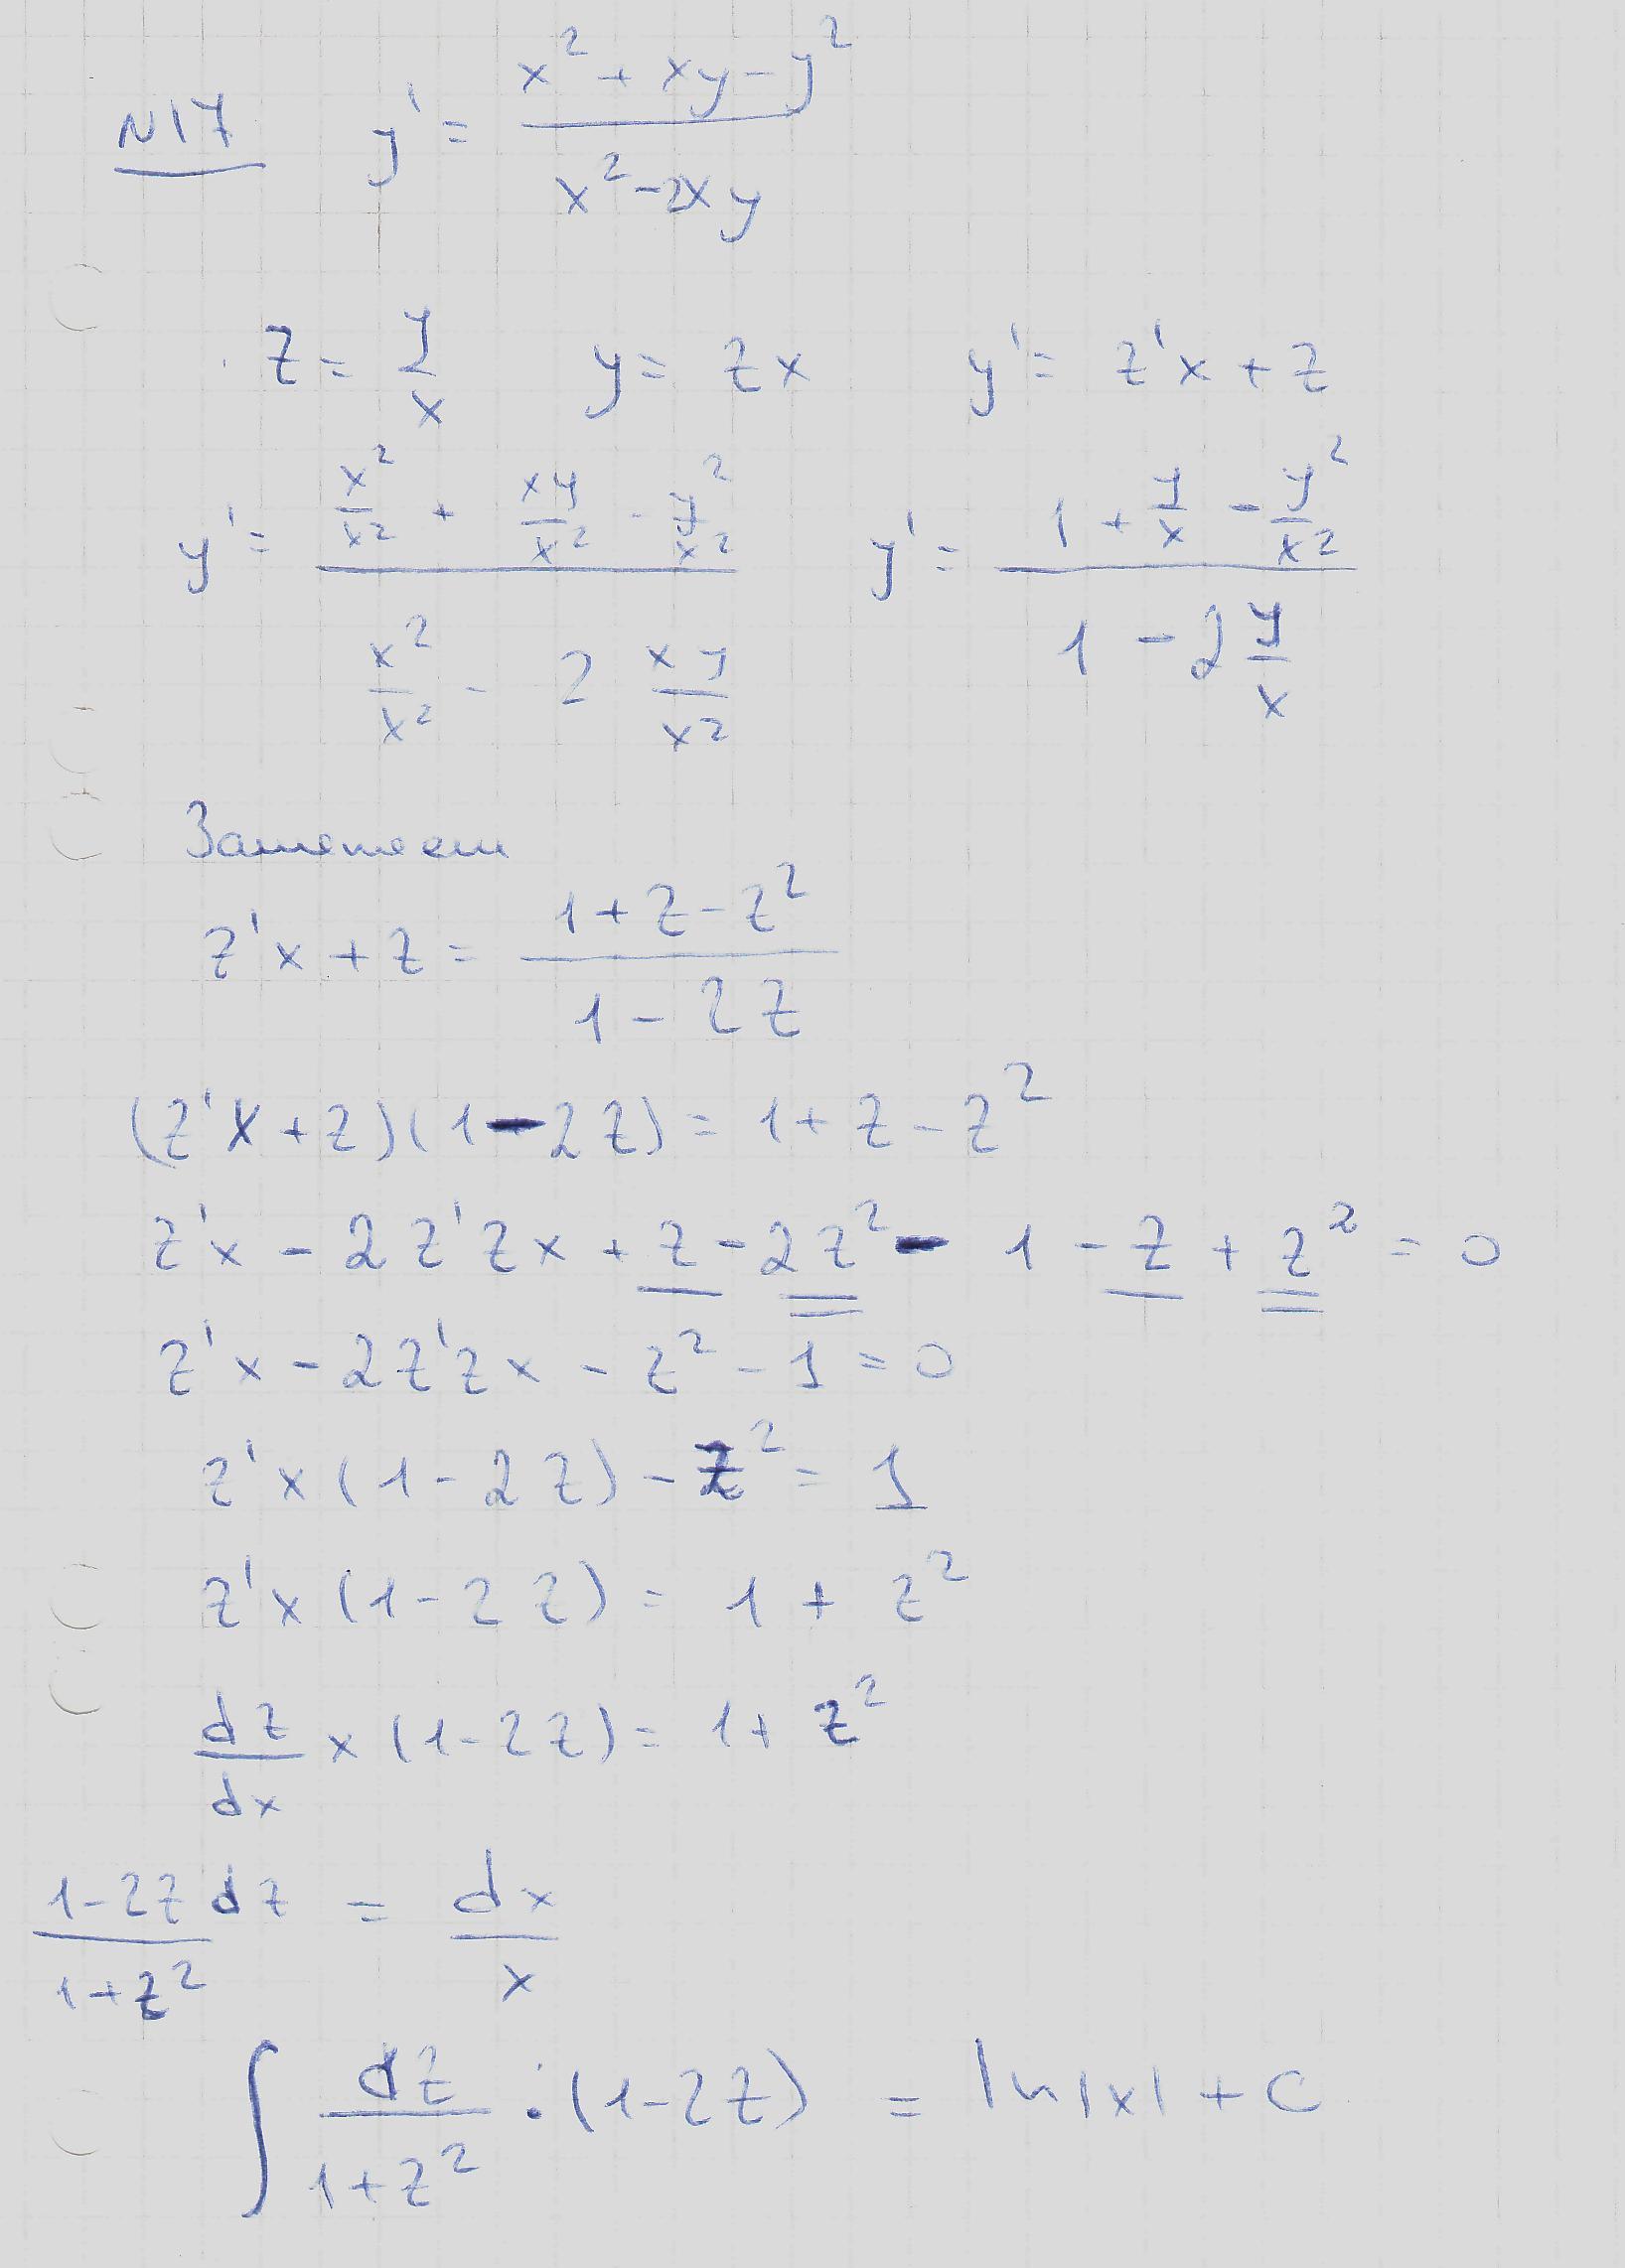 N17 y' = (x² + xy - y²) / (x² - 2xy)
z = y/x y = zx y' = z'x + z
y' = (x²/x² + xy/x² - y²/x²) / (x²/x² - 2 xy/x²) y' = (1 + y/x - y²/x²) / (1 - 2 y/x)
Заменяем
z'x + z = (1 + z - z²) / (1 - 2z)
(z'x + z)(1 - 2z) = 1 + z - z²
z'x - 2z'zx + z - 2z² - 1 - z + z² = 0
z'x - 2z'zx - z² - 1 = 0
z'x(1 - 2z) - z² = 1
z'x(1 - 2z) = 1 + z²
dz/dx x(1 - 2z) = 1 + z²
(1 - 2z)/(1 + z²) dz = dx/x
∫ dz/(1 + z²) · (1 - 2z) = ln|x| + C